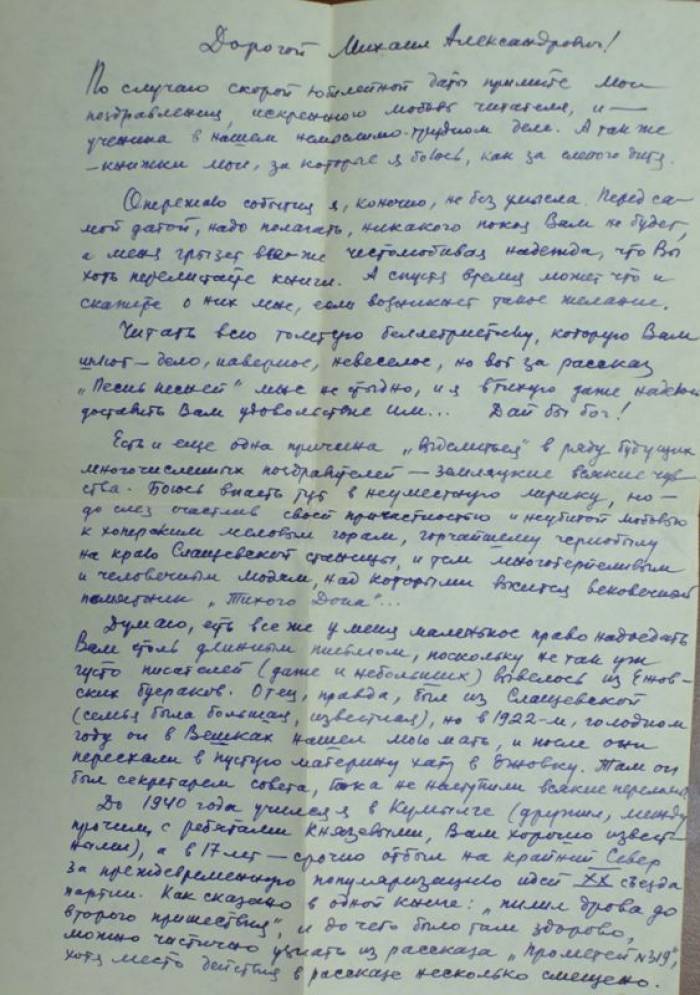 Дорогой Михаил Александрович!
По случаю скорой юбилейной даты примите мои
поздравления, искреннюю любовь читателя, и —
ученика в нашем немыслимо-трудном деле. А так же
– книжки мои, за которые я боюсь, как за слепого дитя.
Опережаю события я, конечно, не без умысла. Перед са-
мой датой, надо полагать, никакого покоя Вам не будет,
а меня грызет все-же честолюбивая надежда, что Вы
хоть перелистаете книги. А спустя время может что и
скажете о них мне, если возникнет такое желание.
Читать всю толстую беллетристику, которую Вам
шлют – дело, наверное, невеселое, но вот за рассказ
„Песнь песней" мне не стыдно, и я втихую даже надеюсь
доставить Вам удовольствие им... Дай бы бог!
Есть и еще одна причина „выделиться" в ряду будущих
многочисленных поздравителей — земляцкие всякие чув-
ства. Боюсь впасть тут в неуместную лирику, но –
до слез счастлив своей причастностью и неубитой любовью
к хоперским меловым горам, горчайшему чернобылу
на краю Слащевской станицы, и тем многотерпеливым
и человечным людям, над которыми высится вековечной
памятник „Тихого Дона"...
Думаю, есть все же у меня маленькое право надоедать
Вам столь длинным письмом, поскольку не так уж
густо писателей (даже и небольших) вывелось из Ежов-
ских буераков. Отец, правда, был из Слащевской
(семья была большая, известная), но в 1922-м, голодном
году он в Вешках нашел мою мать, и после они
переехали в пустую материну хату в Ежовку. Там он
был секретарем совета, пока не наступили всякие перемены
До 1940 года учился я в Кумылге (дружил, между
прочим, с ребятами Князевыми, Вам хорошо извест-
ными), а в 17 лет – срочно отбыл на крайний Север
за преждевременную популяризацию идей XX съезда
партии. Как сказано в одной книге: „пилил дрова до
второго пришествия", и до чего было там здорово,
можно частично узнать из рассказа „Прометей №319",
хотя место действия в рассказе несколько смещено.